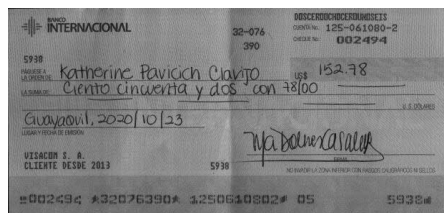 BANCO
INTERNACIONAL
32-076
390
DOSCERDOCHOCERDUNODSEIS
CUENTA No.: 125-061080-2
CHEQUE No.: 002494
5938
PÁGUESE A
LA ORDEN DE Katherine Pavicich Clavijo US$ 152.78
LA SUMA DE Ciento cincuenta y dos con 78/00
U.S. DÓLARES
Guayaquil, 2020/10/23
LUGAR Y FECHA DE EMISIÓN
VISACOM S. A.
CLIENTE DESDE 2013 5938
FIRMA
NO INVADIR LA ZONA INFERIOR CON RASGOS CALIGRÁFICOS NI SELLOS
002494 32076390 1250610802 05 5938